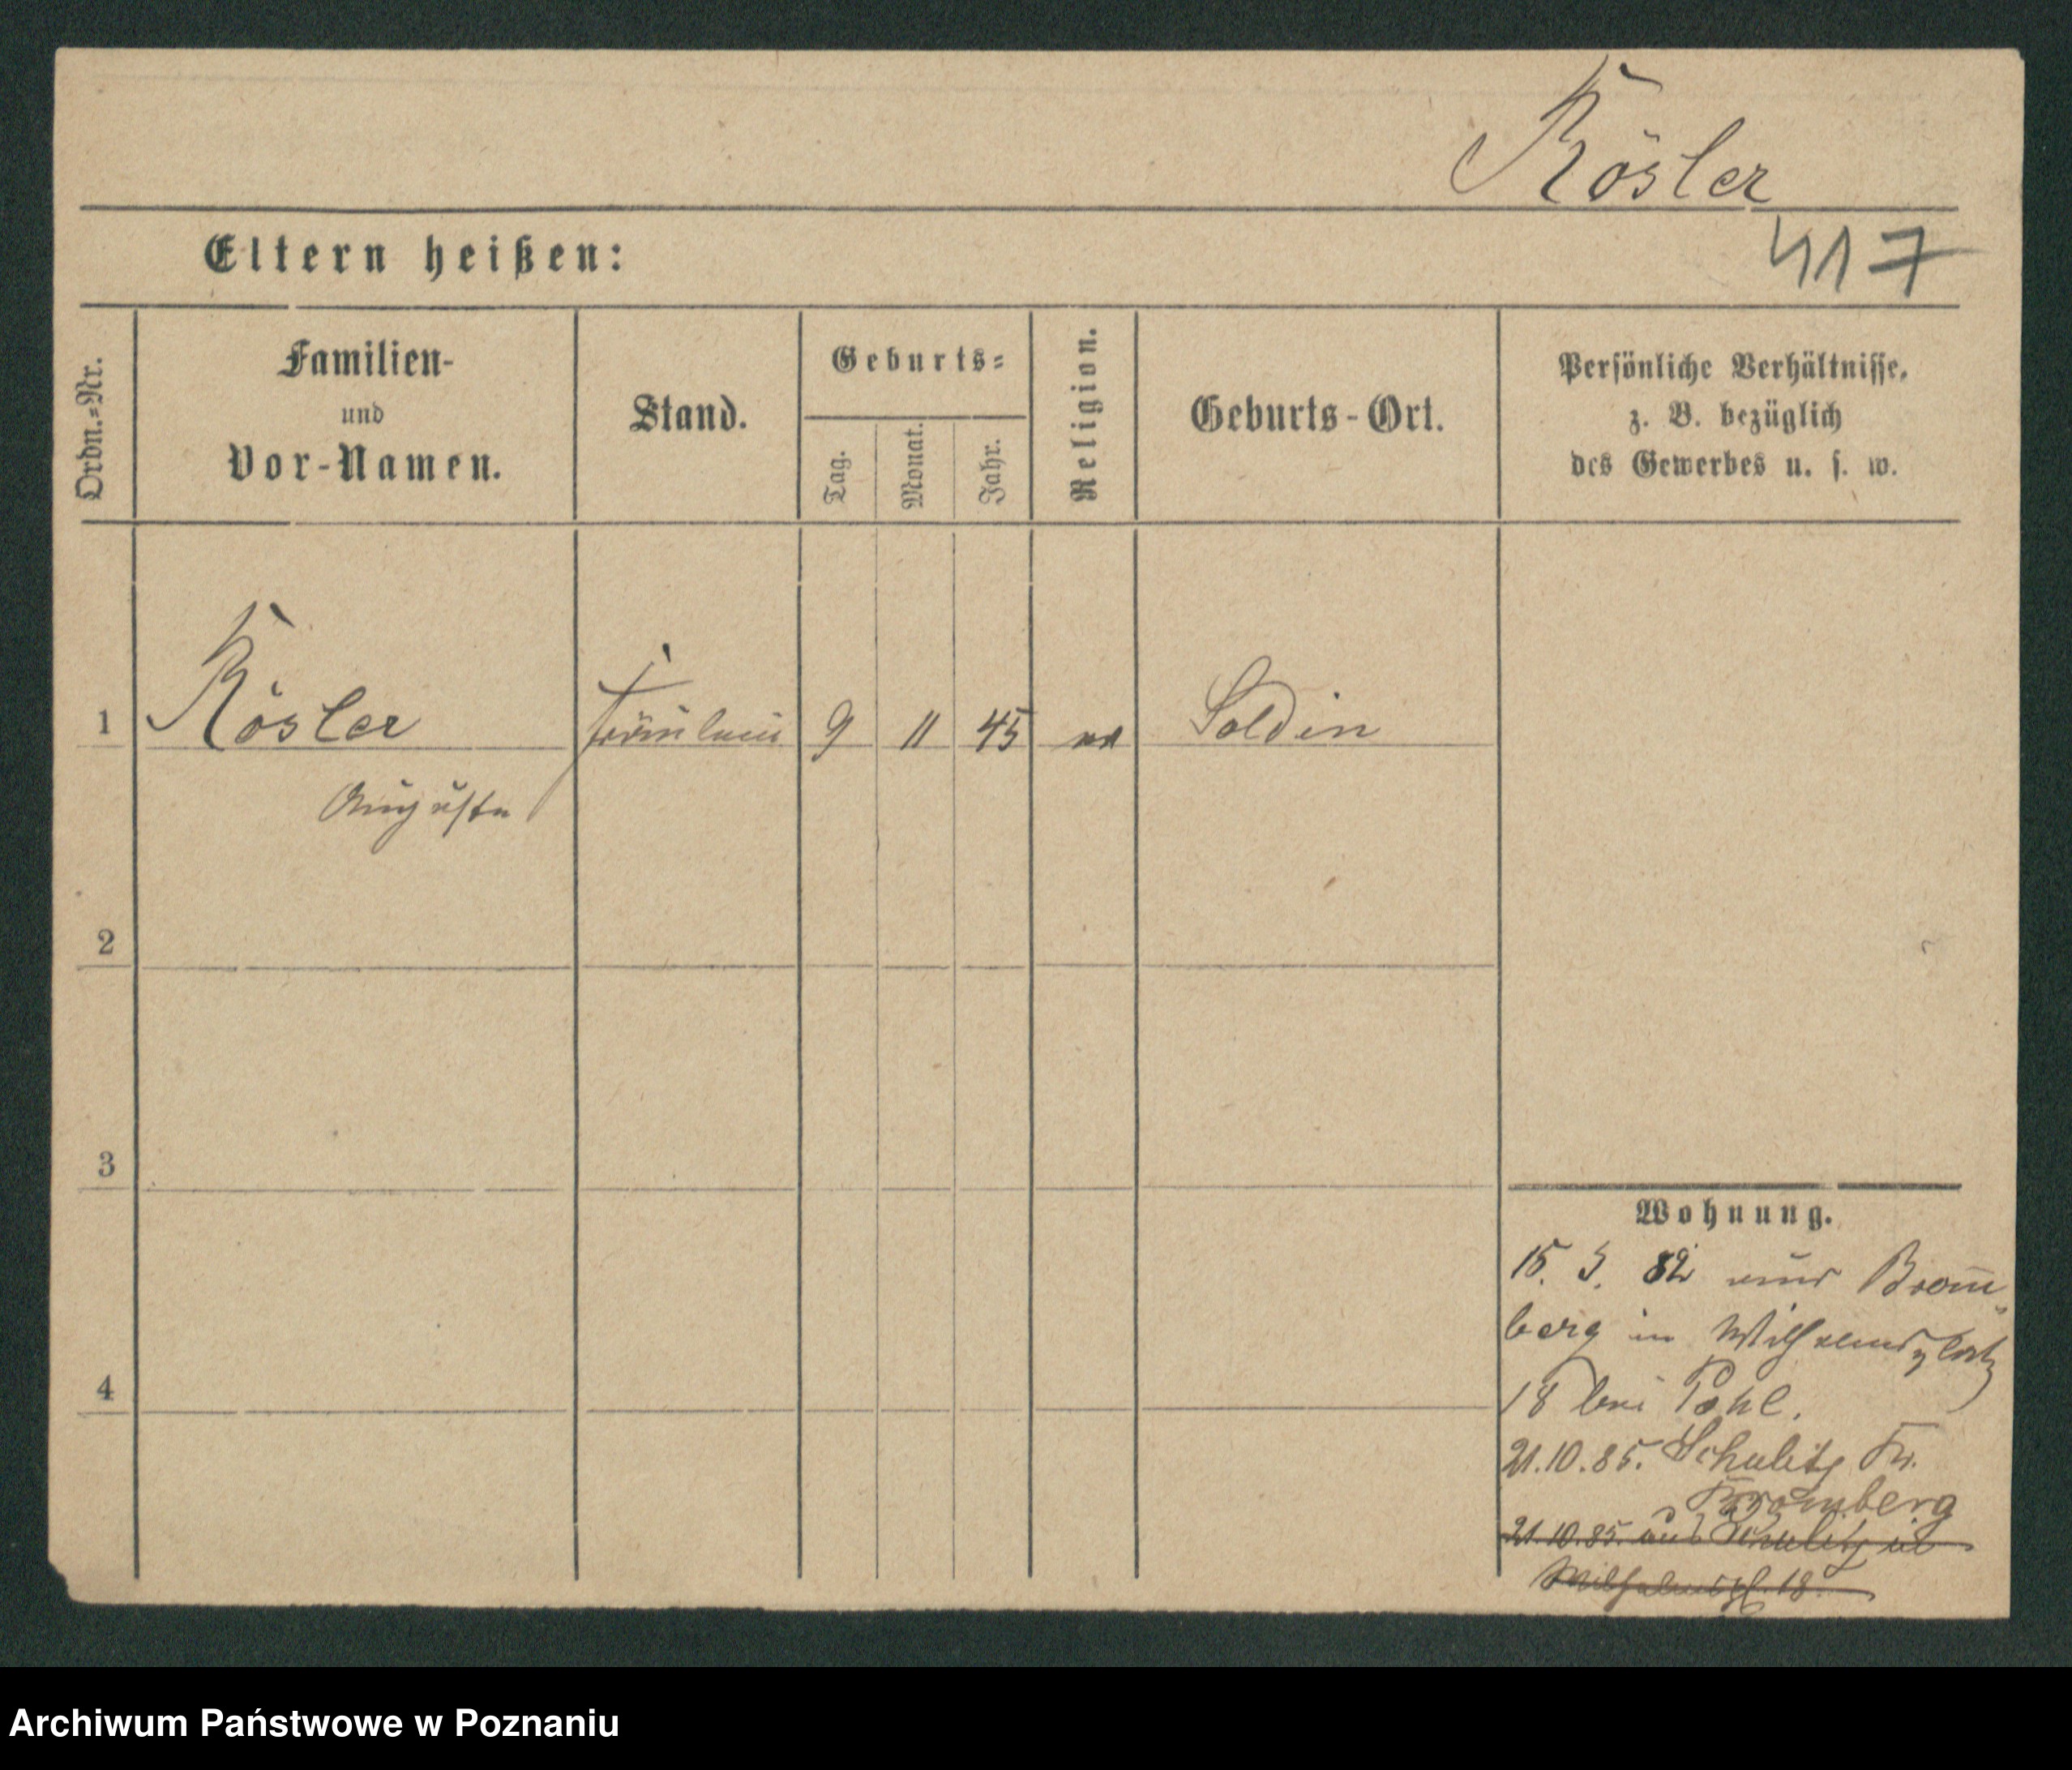 Rösler
417
Eltern heißen:
Ordn.=Nr.
Familien-
und
Vor-Namen.
Stand.
Geburts=
Tag.
Monat.
Jahr.
Religion.
Geburts-Ort.
Persönliche Verhältnisse,
z. B. bezüglich
des Gewerbes u. s. w.
1
Rösler
Fräulein
9
11
45
Soldin
Auguste
2
3
4
Wohnung.
15. 3. 82 aus Brom-
berg in Wilhelmsplatz
18 bei Pohl.
21.10.85. Schulitz Kr.
Bromberg
21.10.85. aus Schulitz in
Wilhelmspl. 18.
Archiwum Państwowe w Poznaniu